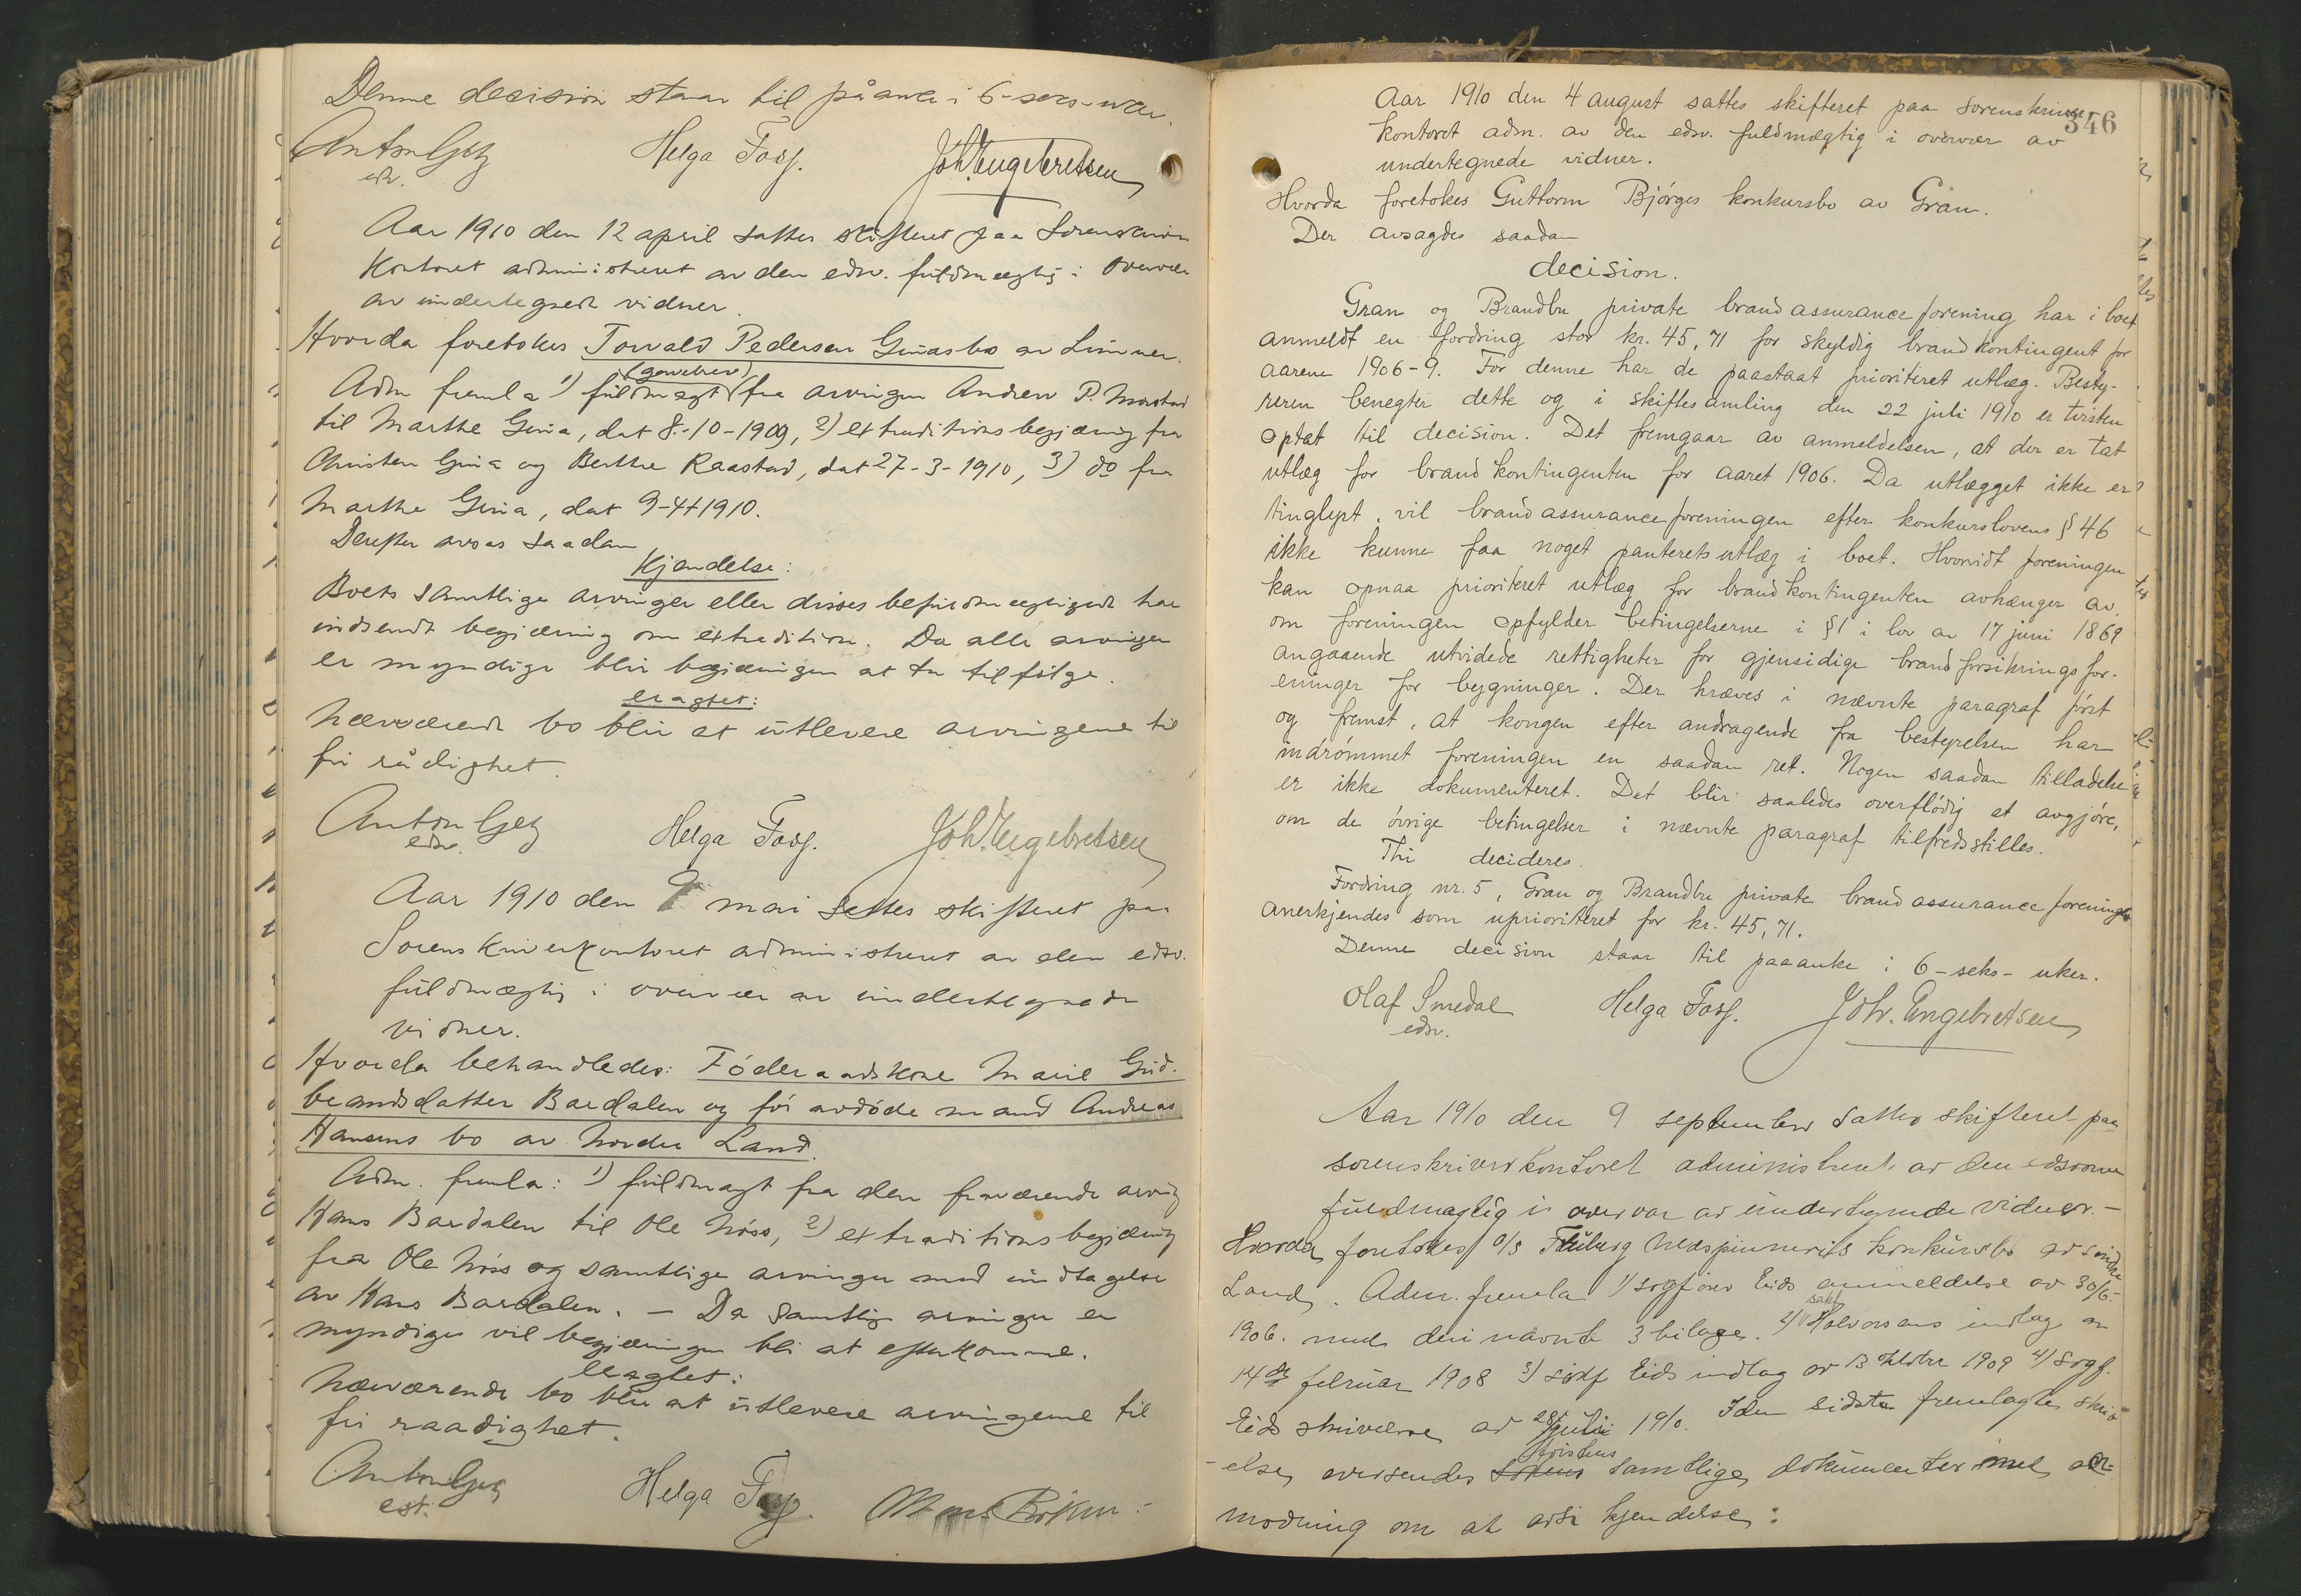 Denne decision staar til påanke i 6-seks-uker.
Anton Getz Helga Fosz. Joh. Engebretsen
edsv.
Aar 1910 den 12 april sattes skifteret paa Sorenskriver
kontoret administreret av den edsv. fuldmægtig i overvær
av undertegnede vidner.
Hvorda foretokes Torvald Pedersen Ginasbo av Lunner.
(gjenpart)
Adm fremla 1) fuldmagt fra arvingen Andrew P.
til Marthe Gina, dat 8-10-1909, 2) extraditionsbegjæring fra
Christen Gina og Berthe Raastad, dat 27-3-1910, 3) do fra
Marthe Gina, dat 9-4-1910.
Derefter avsas saadan
Kjendelse:
Boets samtlige arvinger eller disses befuldmægtigede har
indsendt begjæring om extradition. Da alle arvinger
er myndige blir begjæringen at ta tilfølge.
eragtet:
Nærværende bo blir at utlevere arvingene til
fri rådighet.
Anton Getz Helga Fosz. Joh. Engebretsen
edsv.
Aar 1910 den 9 mai settes skifteret paa
Sorenskriverkontoret administreret av den edsv.
fuldmægtig i overvær av undertegnede
vidner.
Hvorda behandledes: Föderaadskone Marie Gud-
brandsdatter Bardalen og för avdöde mand Andreas
Hansens bo av Nordre Land.
Adm. fremla: 1) fuldmagt fra den fraværende arving
Hans Bardalen til Ole Nöss, 2) extraditionsbegjæring
fra Ole Nöss og samtlige arvinger med undtagelse
av Hans Bardalen. - Da samtlige arvinger er
myndige vil begjæringen bli at efterkomme.
eragtet:
Nærværende bo blir at utlevere arvingerne til
fri raadighet.
Anton Getz Helga Fosz.
346
Aar 1910 den 4 august sattes skifteret paa sorenskriver
kontoret adm. av den edsv. fuldmægtig i overvær av
undertegnede vidner.
Hvorda foretokes Guttorm Bjørges konkursbo av Gran.
Der avsagdes saadan
decision.
Gran og Brandbu private brandassuranceforening har i boet
anmeldt en fordring stor kr. 45,71 for skyldig brandkontingent for
aarene 1906-9. For denne har de paastaat prioriteret utlæg. Besty-
reren benegter dette og i skiftesamling den 22 juli 1910 er tvisten
optat til decision. Det fremgaar av anmeldelsen, at der er tat
utlæg for brandkontingenten for aaret 1906. Da utlægget ikke er
tinglyst, vil brandassuranceforeningen efter konkurslovens § 46
ikke kunne faa noget panteretsutlæg i boet. Hvorvidt foreningen
kan opnaa prioriteret utlæg for brandkontingenten avhænger av,
om foreningen opfylder betingelserne i § 1 i lov av 17 juni 1869
angaaende utvidede rettigheter for gjensidige brandforsikringsfor-
eninger for bygninger. Der kræves i nævnte paragraf först
og fremst, at kongen efter andragende fra bestyrelsen har
indrömmet foreningen en saadan ret. Nogen saadan tilladelse
er ikke dokumenteret. Det blir saaledes overflödig at avgjöre,
om de övrige betingelser i nævnte paragraf tilfredsstilles.
Thi decideres.
Fordring nr. 5, Gran og Brandbu private brandassuranceforening
anerkjendes som uprioriteret for kr. 45,71.
Denne decision staar til paaanke i 6-seks-uker.
Olaf Smedal Helga Fosz. Joh. Engebretsen
edsv.
Aar 1910 den 9 september sattes skifteret paa
sorenskriverkontoret administreret av den edsvorne
fuldmægtig i overvær av undertegnede vidner.-
Hvorda foretokes a/s Fluberg Uldspinneris konkursbo av Söndre
Land. Adm. fremla 1) sagförer Eids anmeldelse av 30/6-
1906. med deri nævnte 3 bilage. 2) sakf Halvorsens indlæg av
14de februar 1908 3) sakf Eids indlæg av 13 oktober 1909 4) sagf.
Eids skrivelse av 28 juli 1910. I den sidste fremlagte skriv-
-else oversendes tvistens samtlige dokumenter med an-
modning om at avsi kjendelse: